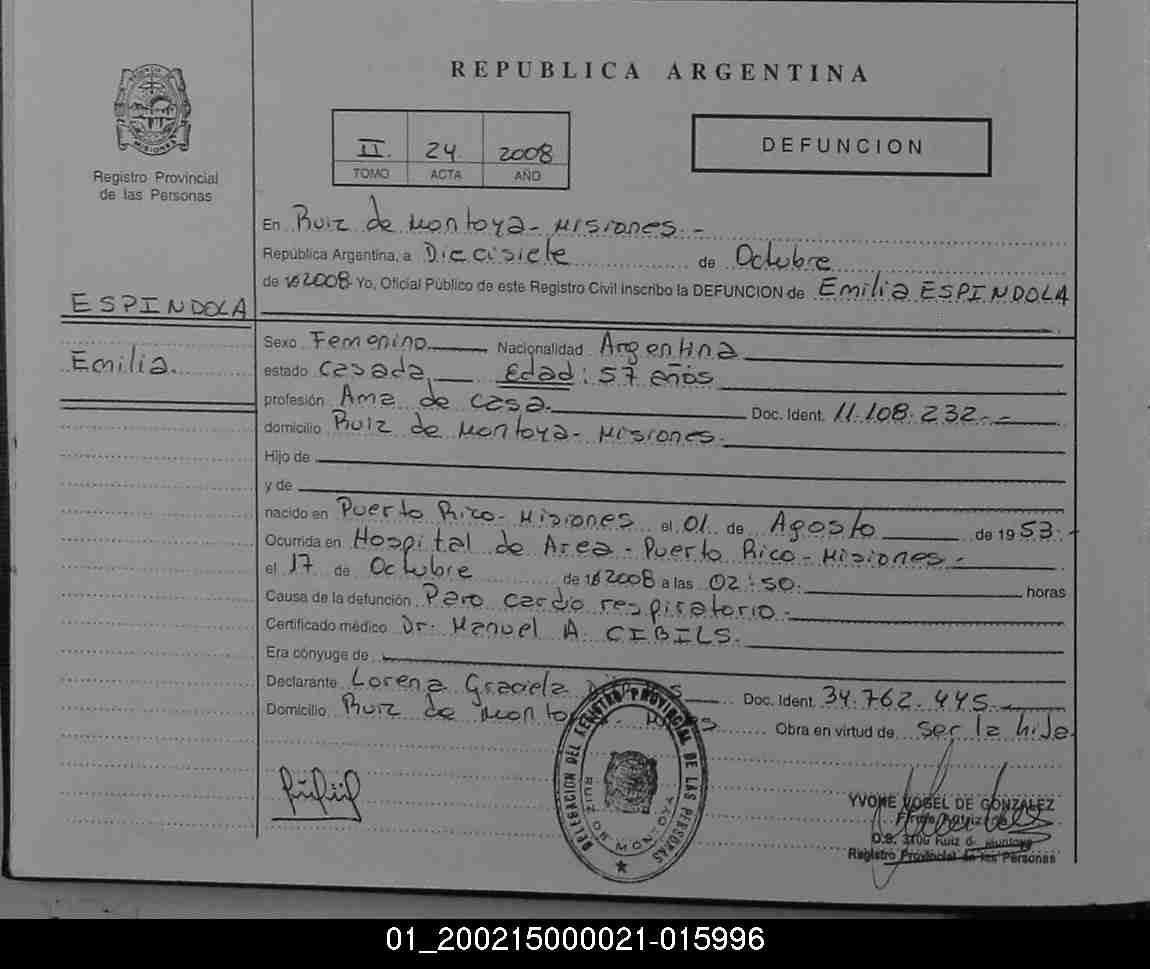 REPUBLICA ARGENTINA
MISIONES
Registro Provincial
de las Personas
II. 24 2008
TOMO ACTA AÑO
DEFUNCION
En Ruiz de Montoya - Misiones. -
República Argentina, a Diecisiete de Octubre
de 2008 Yo, Oficial Público de este Registro Civil inscribo la DEFUNCION de Emilia ESPINDOLA
ESPINDOLA
Emilia.
Sexo Femenino Nacionalidad Argentina
estado Casada, Edad: 57 años
profesión Ama de casa. Doc. Ident. 11.108.232.-
domicilio Ruiz de Montoya - Misiones.
Hijo de
y de
nacido en Puerto Rico - Misiones el 01 de Agosto de 1953.-
Ocurrida en Hospital de Area - Puerto Rico - Misiones -
el 17 de Octubre de 2008 a las 02:50. horas
Causa de la defunción Paro cardo respiratorio.
Certificado médico Dr. Manuel A. CIBILS.
Era cónyuge de
Declarante Lorena Graciela Doc. Ident. 34.762.445.
Domicilio Ruiz de Montoya Obra en virtud de ser la hija.
DELEGACION DEL REGISTRO PROVINCIAL DE LAS PERSONAS
RUIZ DE MONTOYA
YVONE VOGEL DE GONZALEZ
Registro Provincial de las Personas
01_200215000021-015996